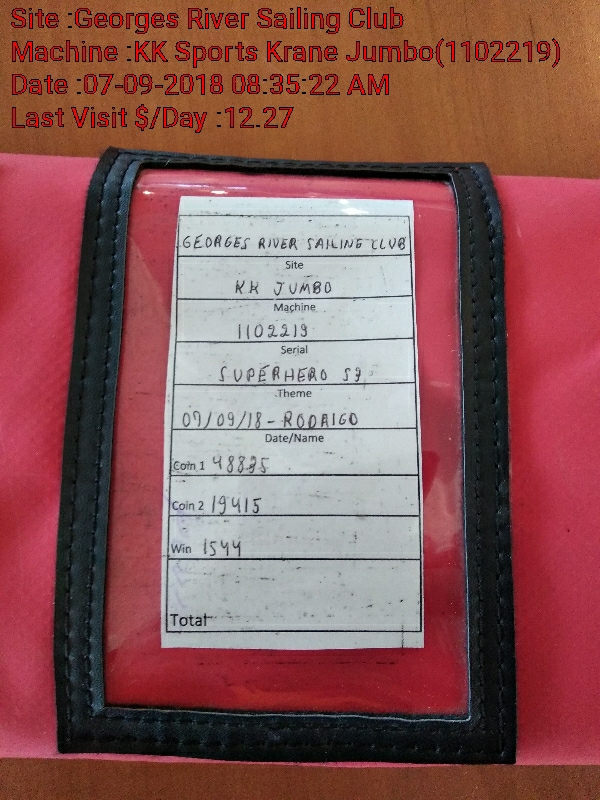 Site :Georges River Sailing Club
Machine :KK Sports Krane Jumbo(1102219)
Date :07-09-2018 08:35:22 AM
Last Visit $/Day :12.27
GEORGES RIVER SAILING CLUB
Site
KK JUMBO
Machine
1102219
Serial
SUPERHERO S9
Theme
07/09/18 - RODRIGO
Date/Name
Coin 1 48835
Coin 2 19415
Win 1544
Total